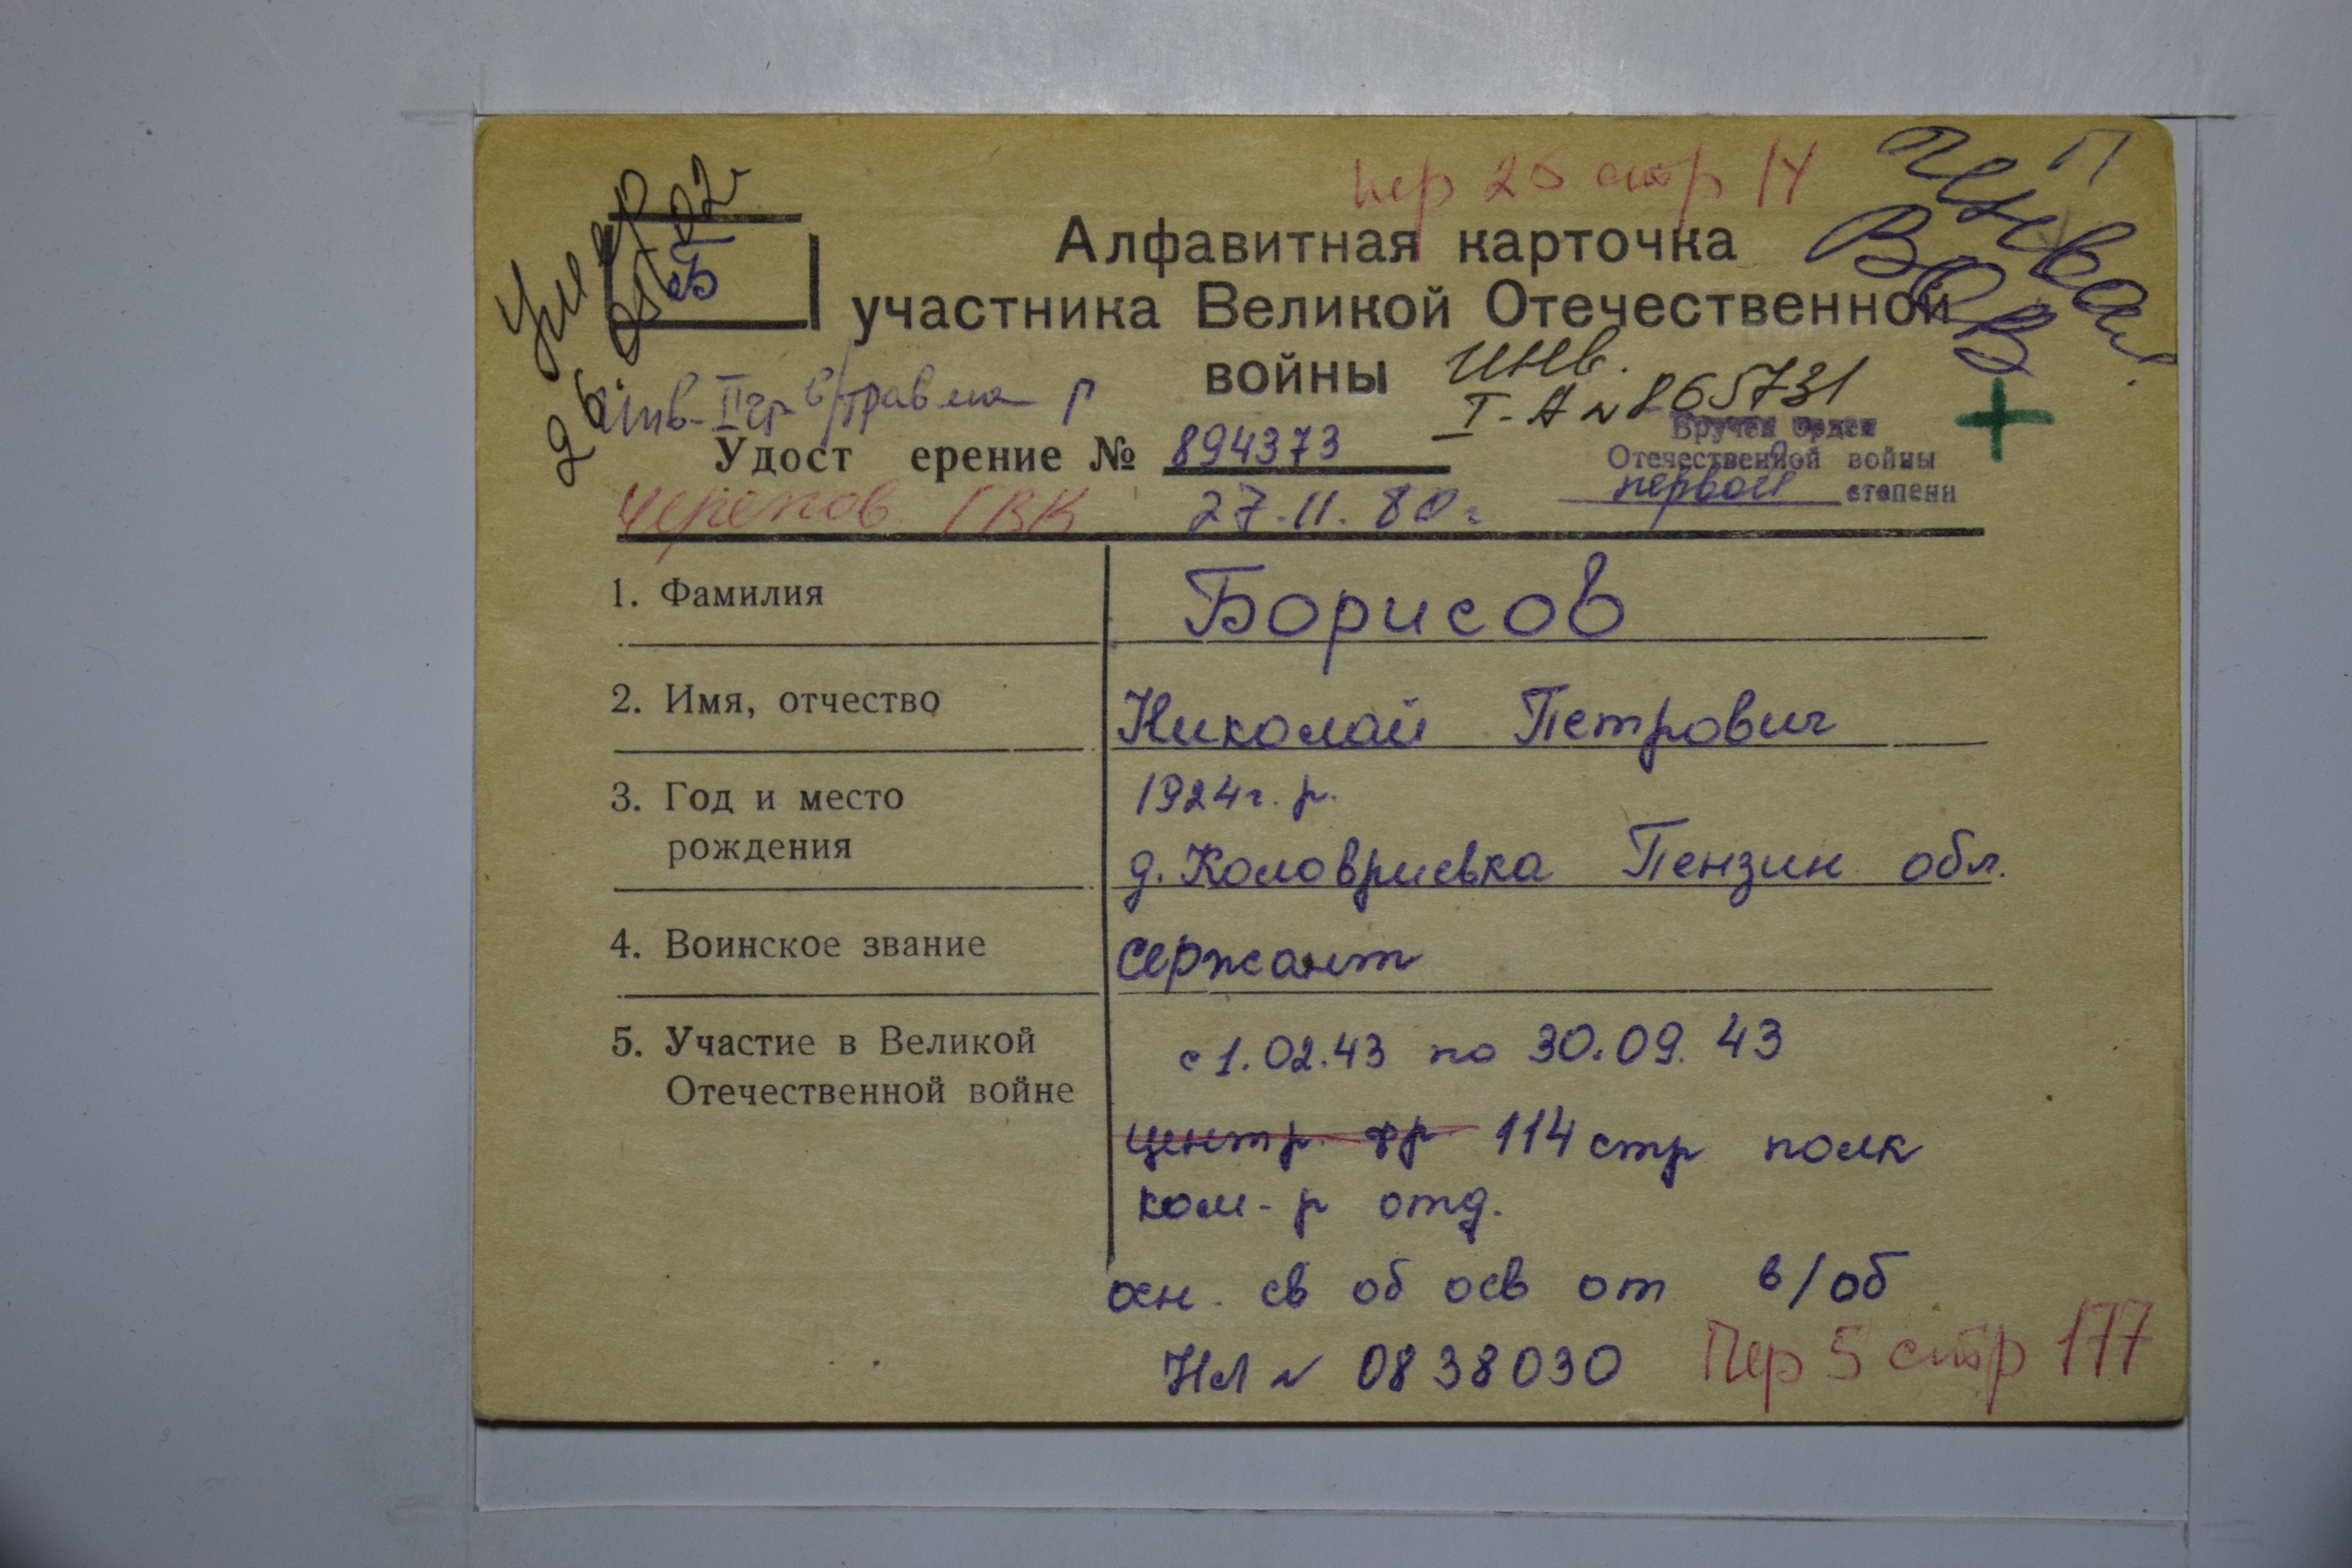 пер 26 стр 14
П
инвал.
ВОВ
Умер
26.05.02г
Б
Алфавитная карточка
участника Великой Отечественной
войны
инв.
I-А № 865731
инв-II гр в/травма р
Удост ерение № 894373
Вручен орден
Отечественной войны
первой степени
Черепов ГВК 27.11.80г
1. Фамилия Борисов
2. Имя, отчество Николай Петрович
3. Год и место 1924г.р.
рождения д. Коловриевка Пензин обл.
4. Воинское звание сержант
5. Участие в Великой с 1.02.43 по 30.09.43
Отечественной войне
центр. фр. 114 стр полк
ком-р отд.
осн. св об осв от в/об
НЛ № 0838030 Пер 5 стр 177